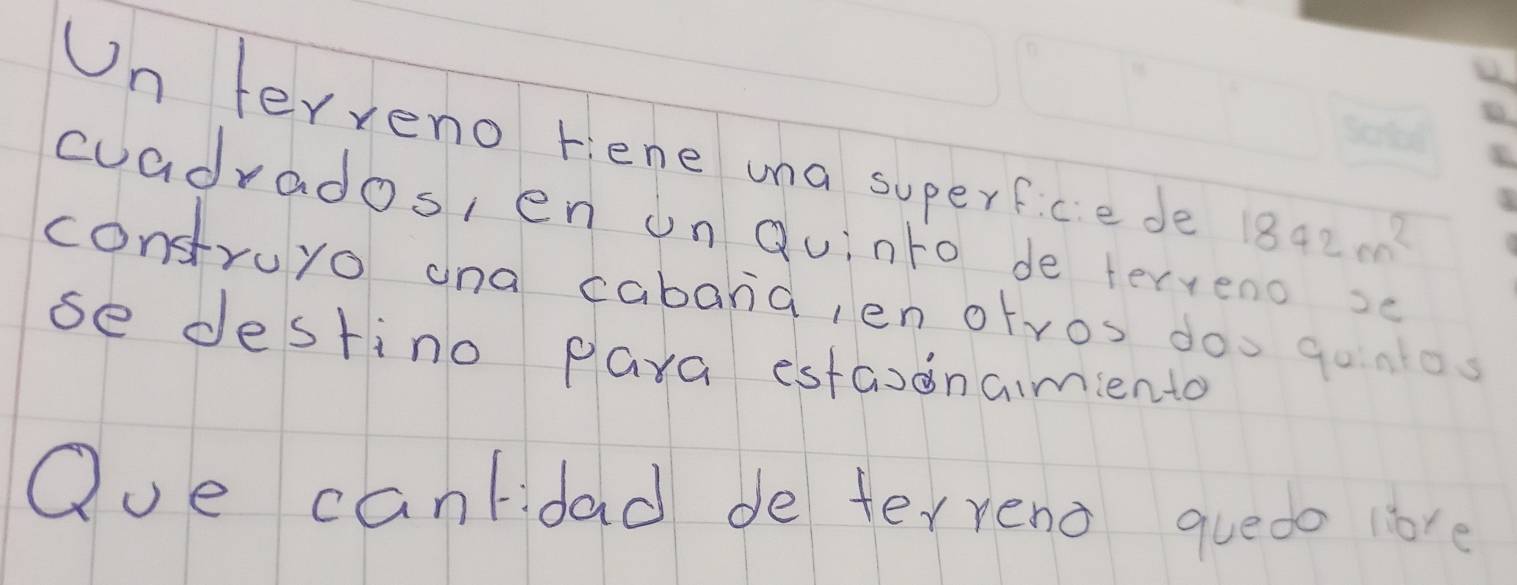 Un terreno tiene una superficie de 1842 m²
cuadrados, en un Quinto de terreno se
construyo una cabaña, en otros dos quintos
se destino para estasonaimiento
Que cantidad de terreno quedo libre